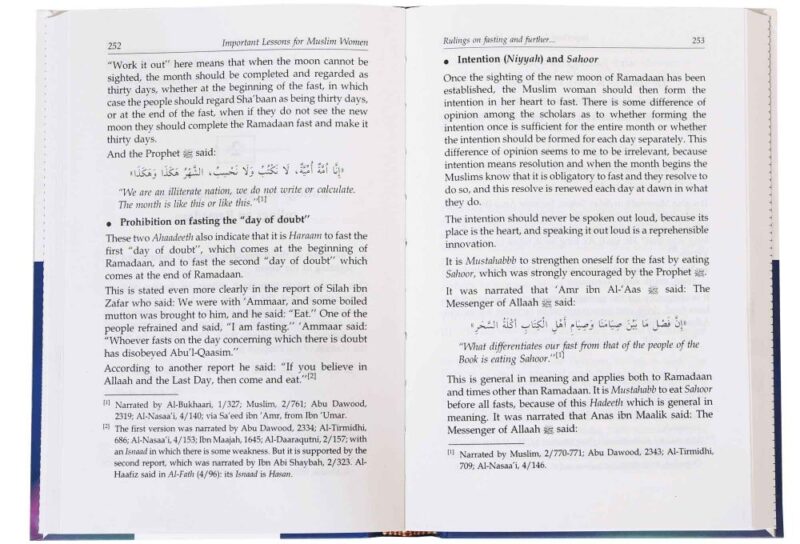 252
Important Lessons for Muslim Women
"Work it out" here means that when the moon cannot be
sighted, the month should be completed and regarded as
thirty days, whether at the beginning of the fast, in which
case the people should regard Sha'baan as being thirty days,
or at the end of the fast, when if they do not see the new
moon they should complete the Ramadaan fast and make it
thirty days.
And the Prophet ﷺ said:
«إِنَّا أُمَّةٌ أُمِّيَّةٌ، لَا نَكْتُبُ وَلَا نَحْسِبُ، الشَّهْرُ هَكَذَا وَهَكَذَا»
"We are an illiterate nation, we do not write or calculate.
The month is like this or like this."[1]
• Prohibition on fasting the "day of doubt"
These two Ahaadeeth also indicate that it is Haraam to fast the
first "day of doubt", which comes at the beginning of
Ramadaan, and to fast the second "day of doubt" which
comes at the end of Ramadaan.
This is stated even more clearly in the report of Silah ibn
Zafar who said: We were with 'Ammaar, and some boiled
mutton was brought to him, and he said: "Eat." One of the
people refrained and said, "I am fasting." 'Ammaar said:
"Whoever fasts on the day concerning which there is doubt
has disobeyed Abu'l-Qaasim."
According to another report he said: "If you believe in
Allaah and the Last Day, then come and eat."[2]
[1] Narrated by Al-Bukhaari, 1/327; Muslim, 2/761; Abu Dawood,
2319; Al-Nasaa'i, 4/140; via Sa'eed ibn 'Amr, from Ibn 'Umar.
[2] The first version was narrated by Abu Dawood, 2334; Al-Tirmidhi,
686; Al-Nasaa'i, 4/153; Ibn Maajah, 1645; Al-Daaraqutni, 2/157; with
an Isnaad in which there is some weakness. But it is supported by the
second report, which was narrated by Ibn Abi Shaybah, 2/323. Al-
Haafiz said in Al-Fath (4/96): its Isnaad is Hasan.
Rulings on fasting and further...
253
• Intention (Niyyah) and Sahoor
Once the sighting of the new moon of Ramadaan has been
established, the Muslim woman should then form the
intention in her heart to fast. There is some difference of
opinion among the scholars as to whether forming the
intention once is sufficient for the entire month or whether
the intention should be formed for each day separately. This
difference of opinion seems to me to be irrelevant, because
intention means resolution and when the month begins the
Muslims know that it is obligatory to fast and they resolve to
do so, and this resolve is renewed each day at dawn in what
they do.
The intention should never be spoken out loud, because its
place is the heart, and speaking it out loud is a reprehensible
innovation.
It is Mustahabbb to strengthen oneself for the fast by eating
Sahoor, which was strongly encouraged by the Prophet ﷺ.
It was narrated that 'Amr ibn Al-'Aas ﷺ said: The
Messenger of Allaah ﷺ said:
«إِنَّ فَصْلَ مَا بَيْنَ صِيَامِنَا وَصِيَامِ أَهْلِ الْكِتَابِ أَكْلَةُ السَّحَرِ»
"What differentiates our fast from that of the people of the
Book is eating Sahoor."[1]
This is general in meaning and applies both to Ramadaan
and times other than Ramadaan. It is Mustahabb to eat Sahoor
before all fasts, because of this Hadeeth which is general in
meaning. It was narrated that Anas ibn Maalik said: The
Messenger of Allaah ﷺ said:
[1] Narrated by Muslim, 2/770-771; Abu Dawood, 2343; Al-Tirmidhi,
709; Al-Nasaa'i, 4/146.